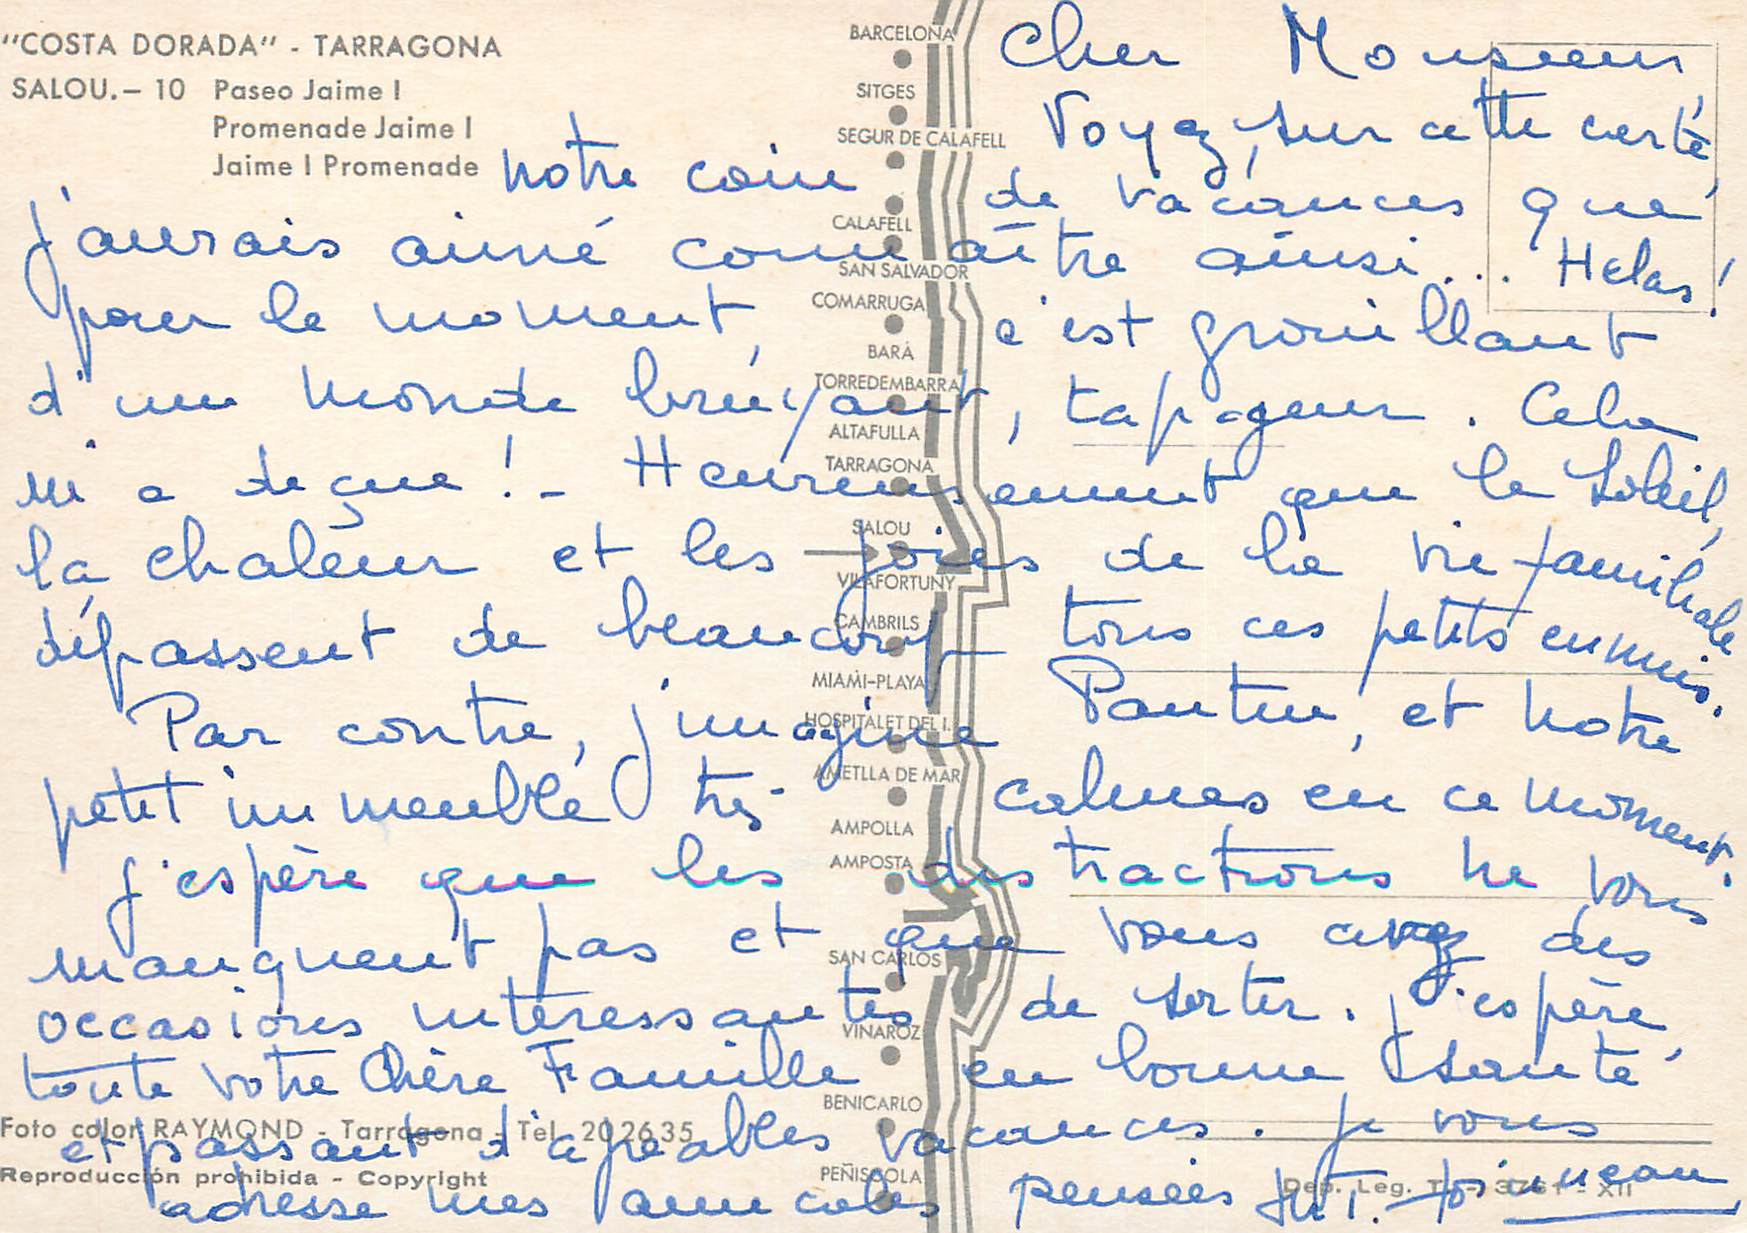 "COSTA DORADA" - TARRAGONA
SALOU.- 10 Paseo Jaime I
Promenade Jaime I
Jaime I Promenade
BARCELONA
SITGES
SEGUR DE CALAFELL
CALAFELL
SAN SALVADOR
COMARRUGA
BARÁ
TORREDEMBARRA
ALTAFULLA
TARRAGONA
SALOU
VILAFORTUNY
CAMBRILS
MIAMI-PLAYA
HOSPITALET DEL I.
AMETLLA DE MAR
AMPOLLA
AMPOSTA
SAN CARLOS
VINAROZ
BENICARLO
PEÑISCOLA
Cher Monsieur,
Voyez, sur cette carte,
notre coin de vacances que
j'aurais aimé connaître ainsi... Hélas!
pour le moment, c'est grouillant
d'un monde bruyant, tapageur. Cela
m'a deçue! - Heureusement que le soleil,
la chaleur et les joies de la vie familiale
dépassent de beaucoup tous ces petits ennuis.
Par contre, j'imagine Pantin, et notre
petit immeuble très calmes en ce moment.
J'espère que les distractions ne vous
manquent pas et que vous avez des
occasions intéressantes de sortir. J'espère,
toute votre Chère Famille en bonne santé
et passant d'agréables vacances. Je vous
adresse mes amicales pensées
Foto color RAYMOND - Tarragona - Tel. 202635
Reproducción prohibida - Copyright
Dep. Leg. T. - 3761 - XII